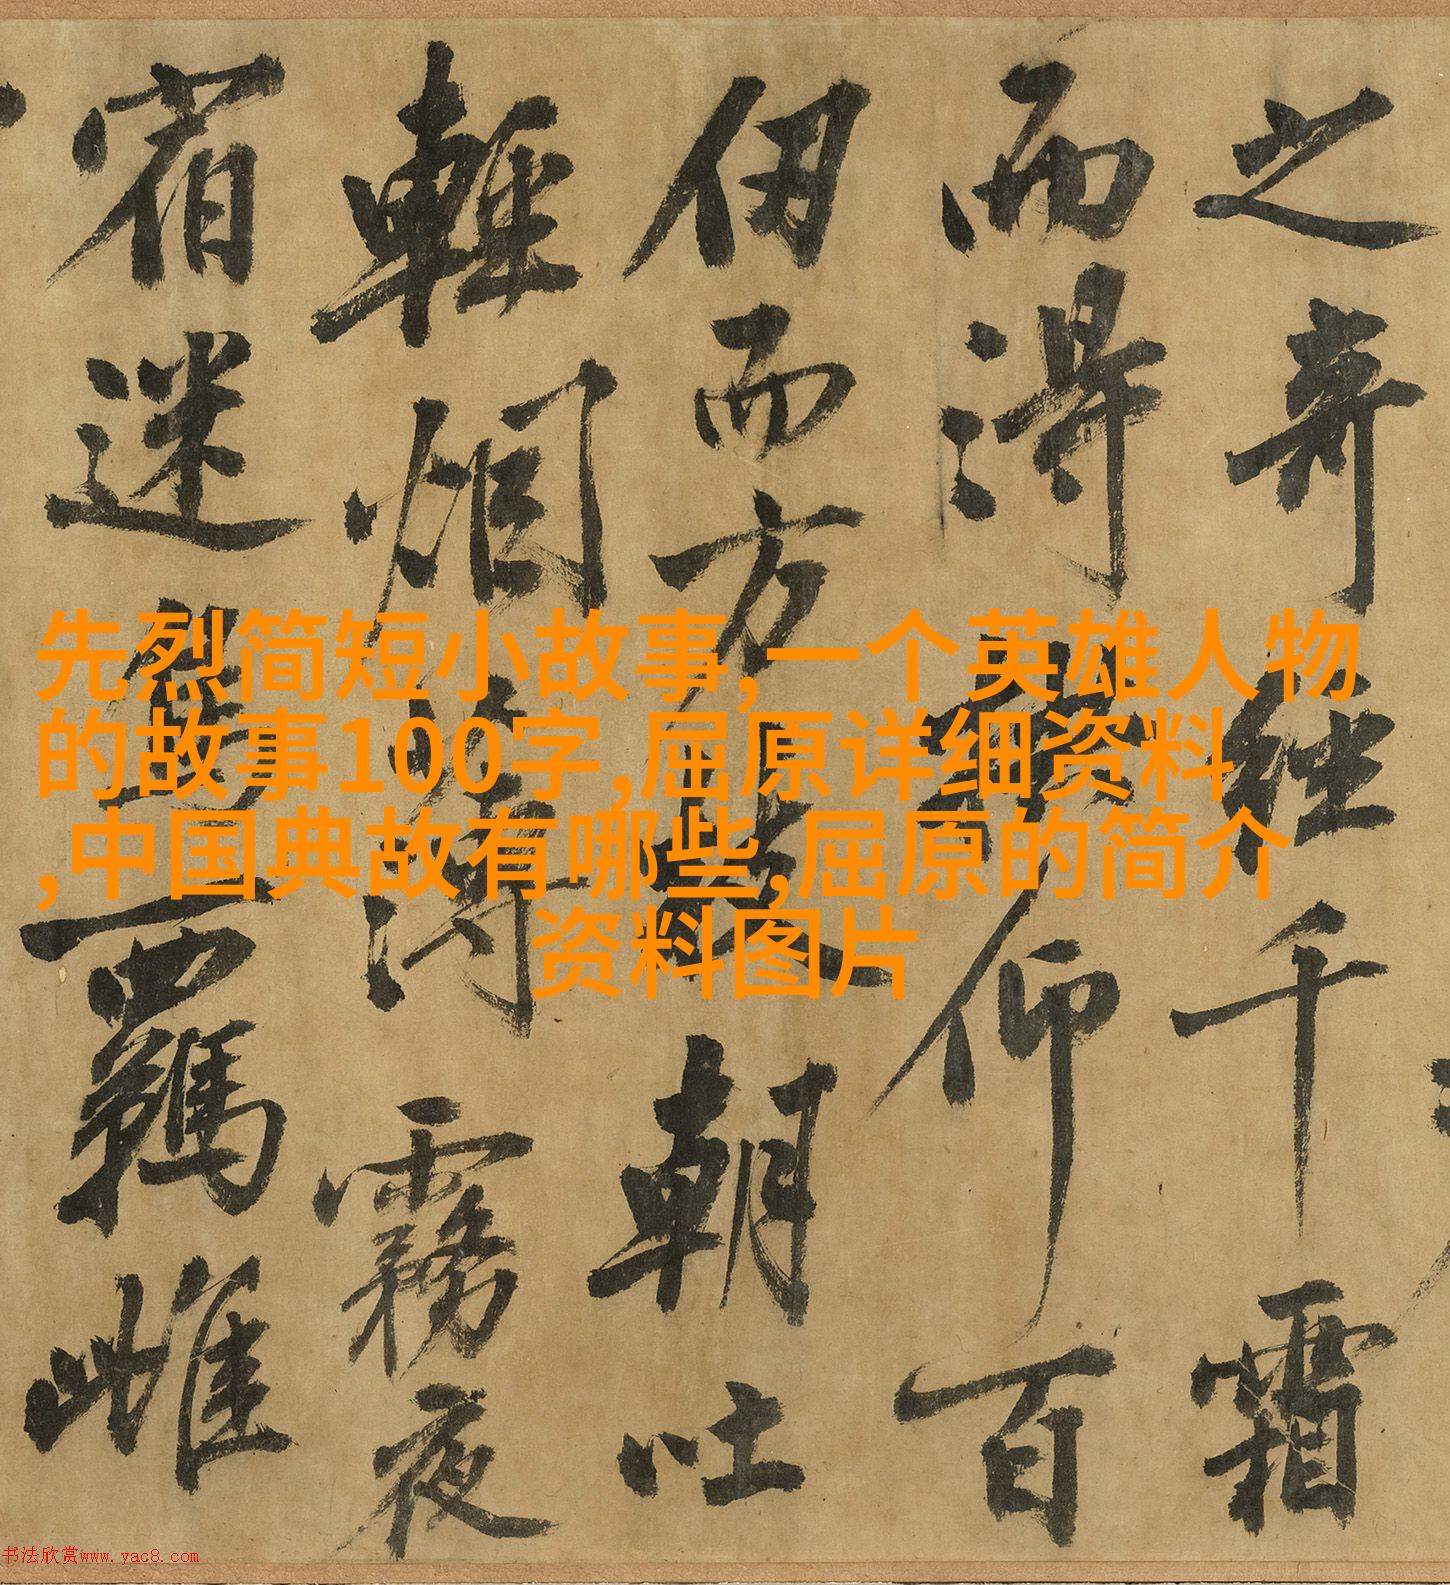 之奇經千霜
而得仰百
仞而方朝吐
輕烟薄霧夜
宿迷羈雌
先烈简短小故事,一个英雄人物
的故事100字,屈原详细资料
,中国典故有哪些,屈原的简介
资料图片
书法欣赏www.yac8.com